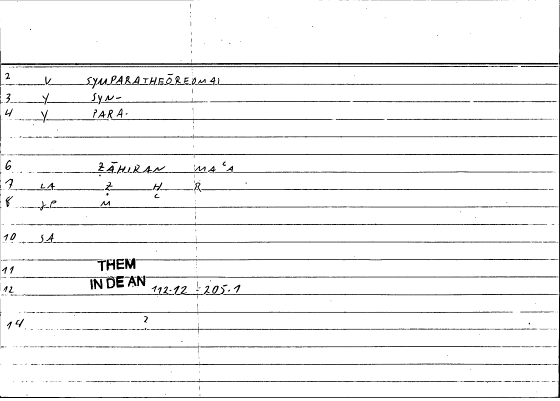 2 V SYMPARATHEŌREOMAI
3 Y SYN-
4 Y PARA-
6 ẒĀHIRAN MAʿA
7 LA Ẓ H R
8 M ʿ
10 SA
11 THEM
IN DE AN
12 112-12 - 205.1
14 2